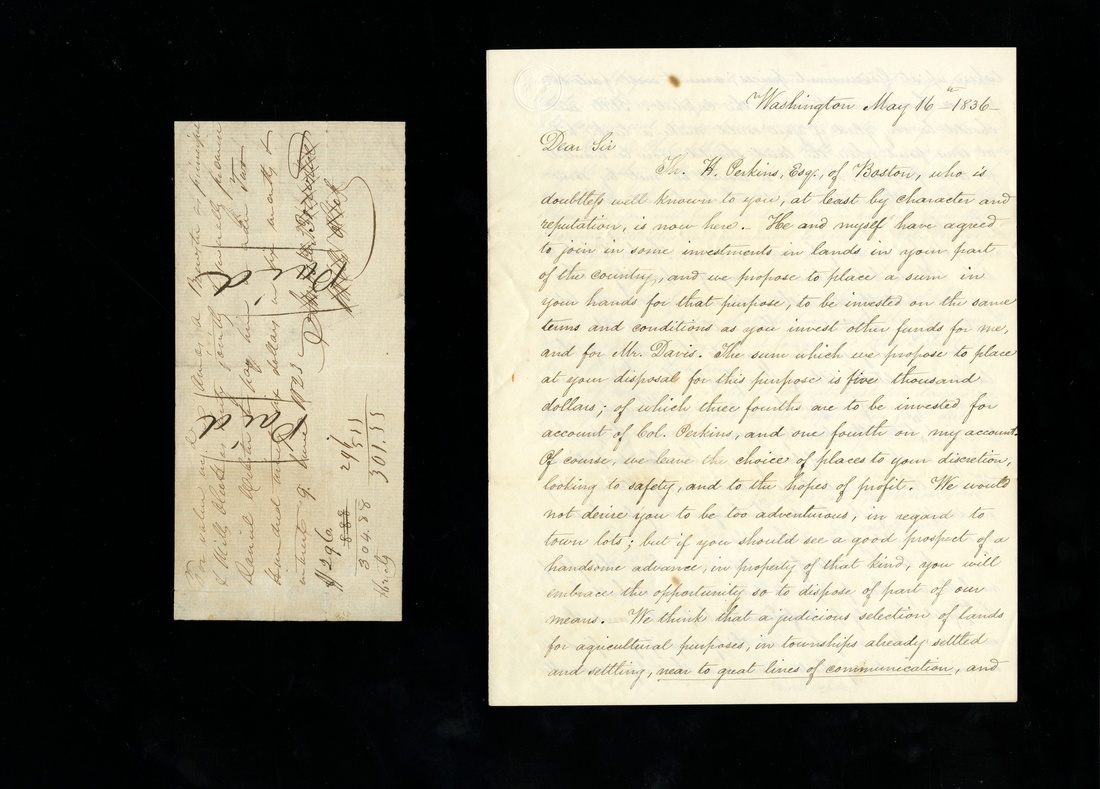 For value rec'd I Amasa Bowith as principal
& Mills Olcott as surety jointly & severally promise
Daniel Webster to pay him or order Two
hundred ninety six dollars in six months &
interest. 9. June 1823
Mills Olcott
Paid
Paid
$296.
888
304.88
296
511
301.55
Washington May 16th 1836—
Dear Sir
Th. H. Perkins, Esq., of Boston, who is
doubtless well known to you, at least by character and
reputation, is now here. He and myself have agreed
to join in some investments in lands in your part
of the country, and we propose to place a sum in
your hands for that purpose, to be invested on the same
terms and conditions as you invest other funds for me,
and for Mr. Davis. The sum which we propose to place
at your disposal for this purpose is five thousand
dollars; of which three fourths are to be invested for
account of Col. Perkins, and one fourth on my account.
Of course, we leave the choice of places to your discretion,
looking to safety, and to the hopes of profit. We would
not desire you to be too adventurous, in regard to
town lots; but if you should see a good prospect of a
handsome advance, in property of that kind, you will
embrace the opportunity so to dispose of part of our
means. We think that a judicious selection of lands
for agricultural purposes, in townships already settled
and settling, near to great lines of communication, and